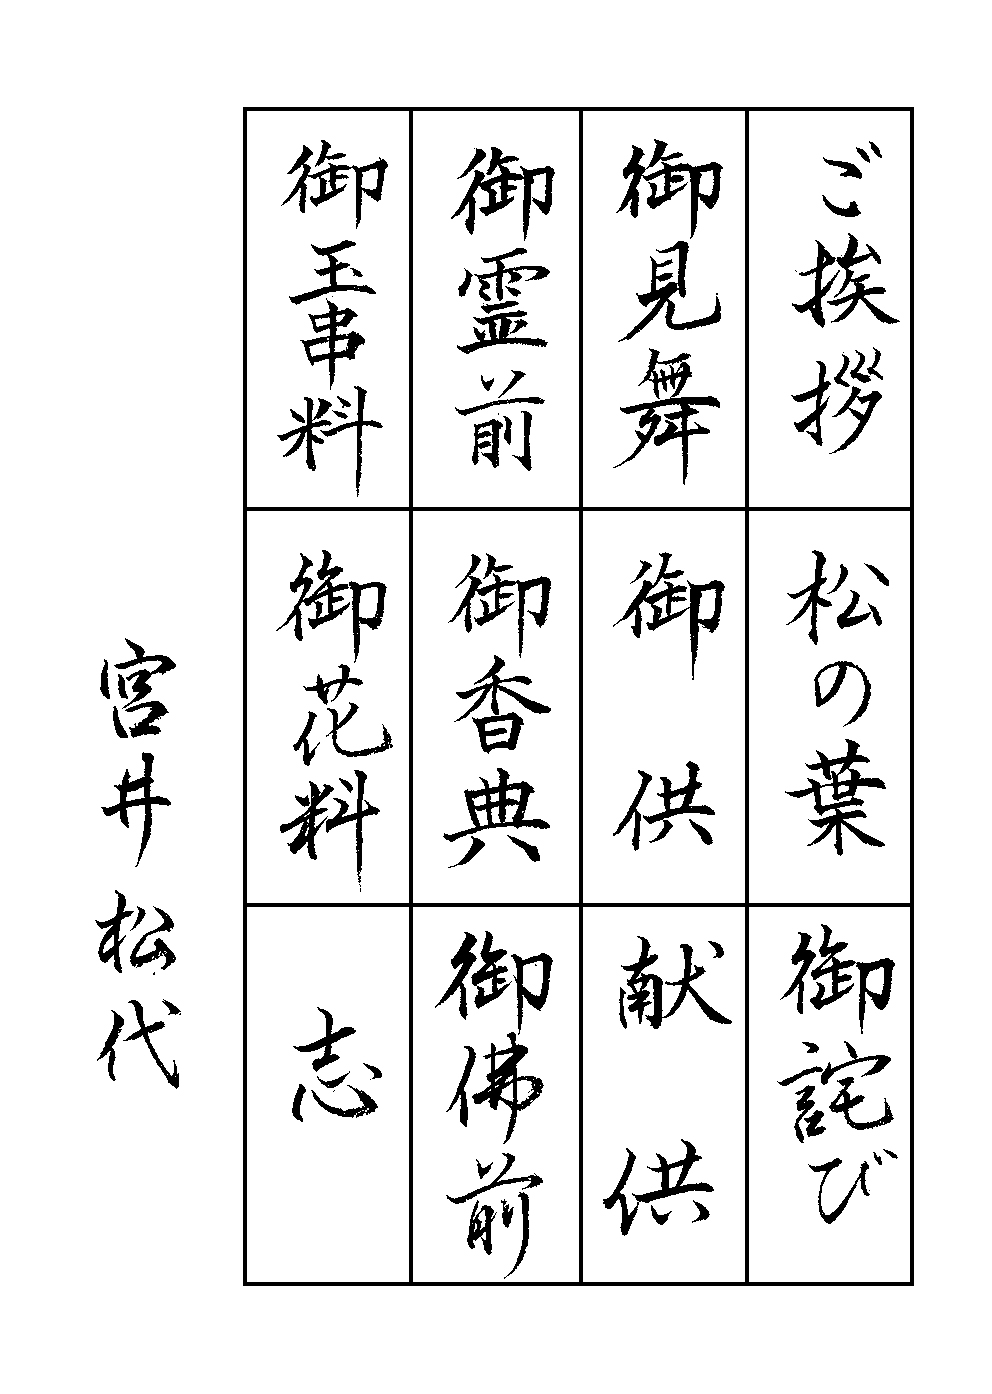 ご挨拶
松の葉
御詫び
御見舞
御供
献供
御霊前
御香典
御佛前
御玉串料
御花料
志
宮井松代